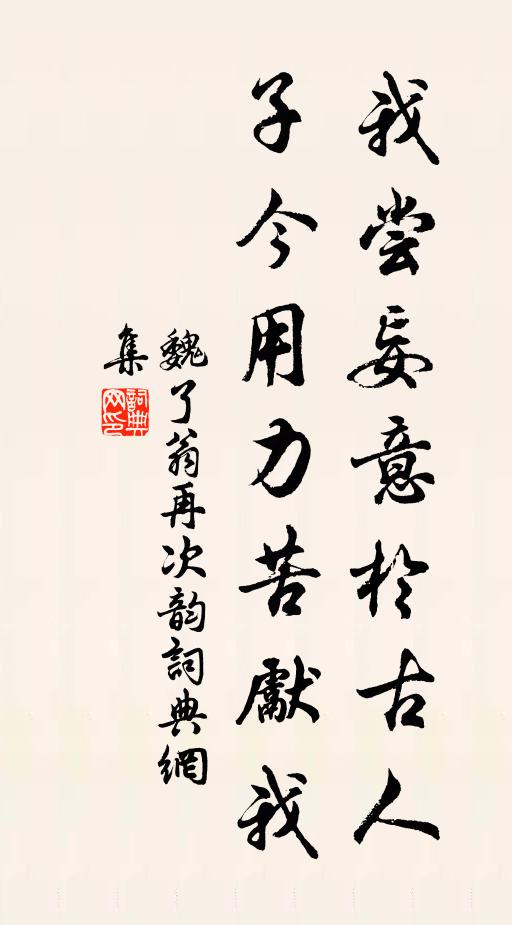 我尝妄意於古人
子今用力苦獻我
魏了翁再次韵詞典網
集
詞典网印